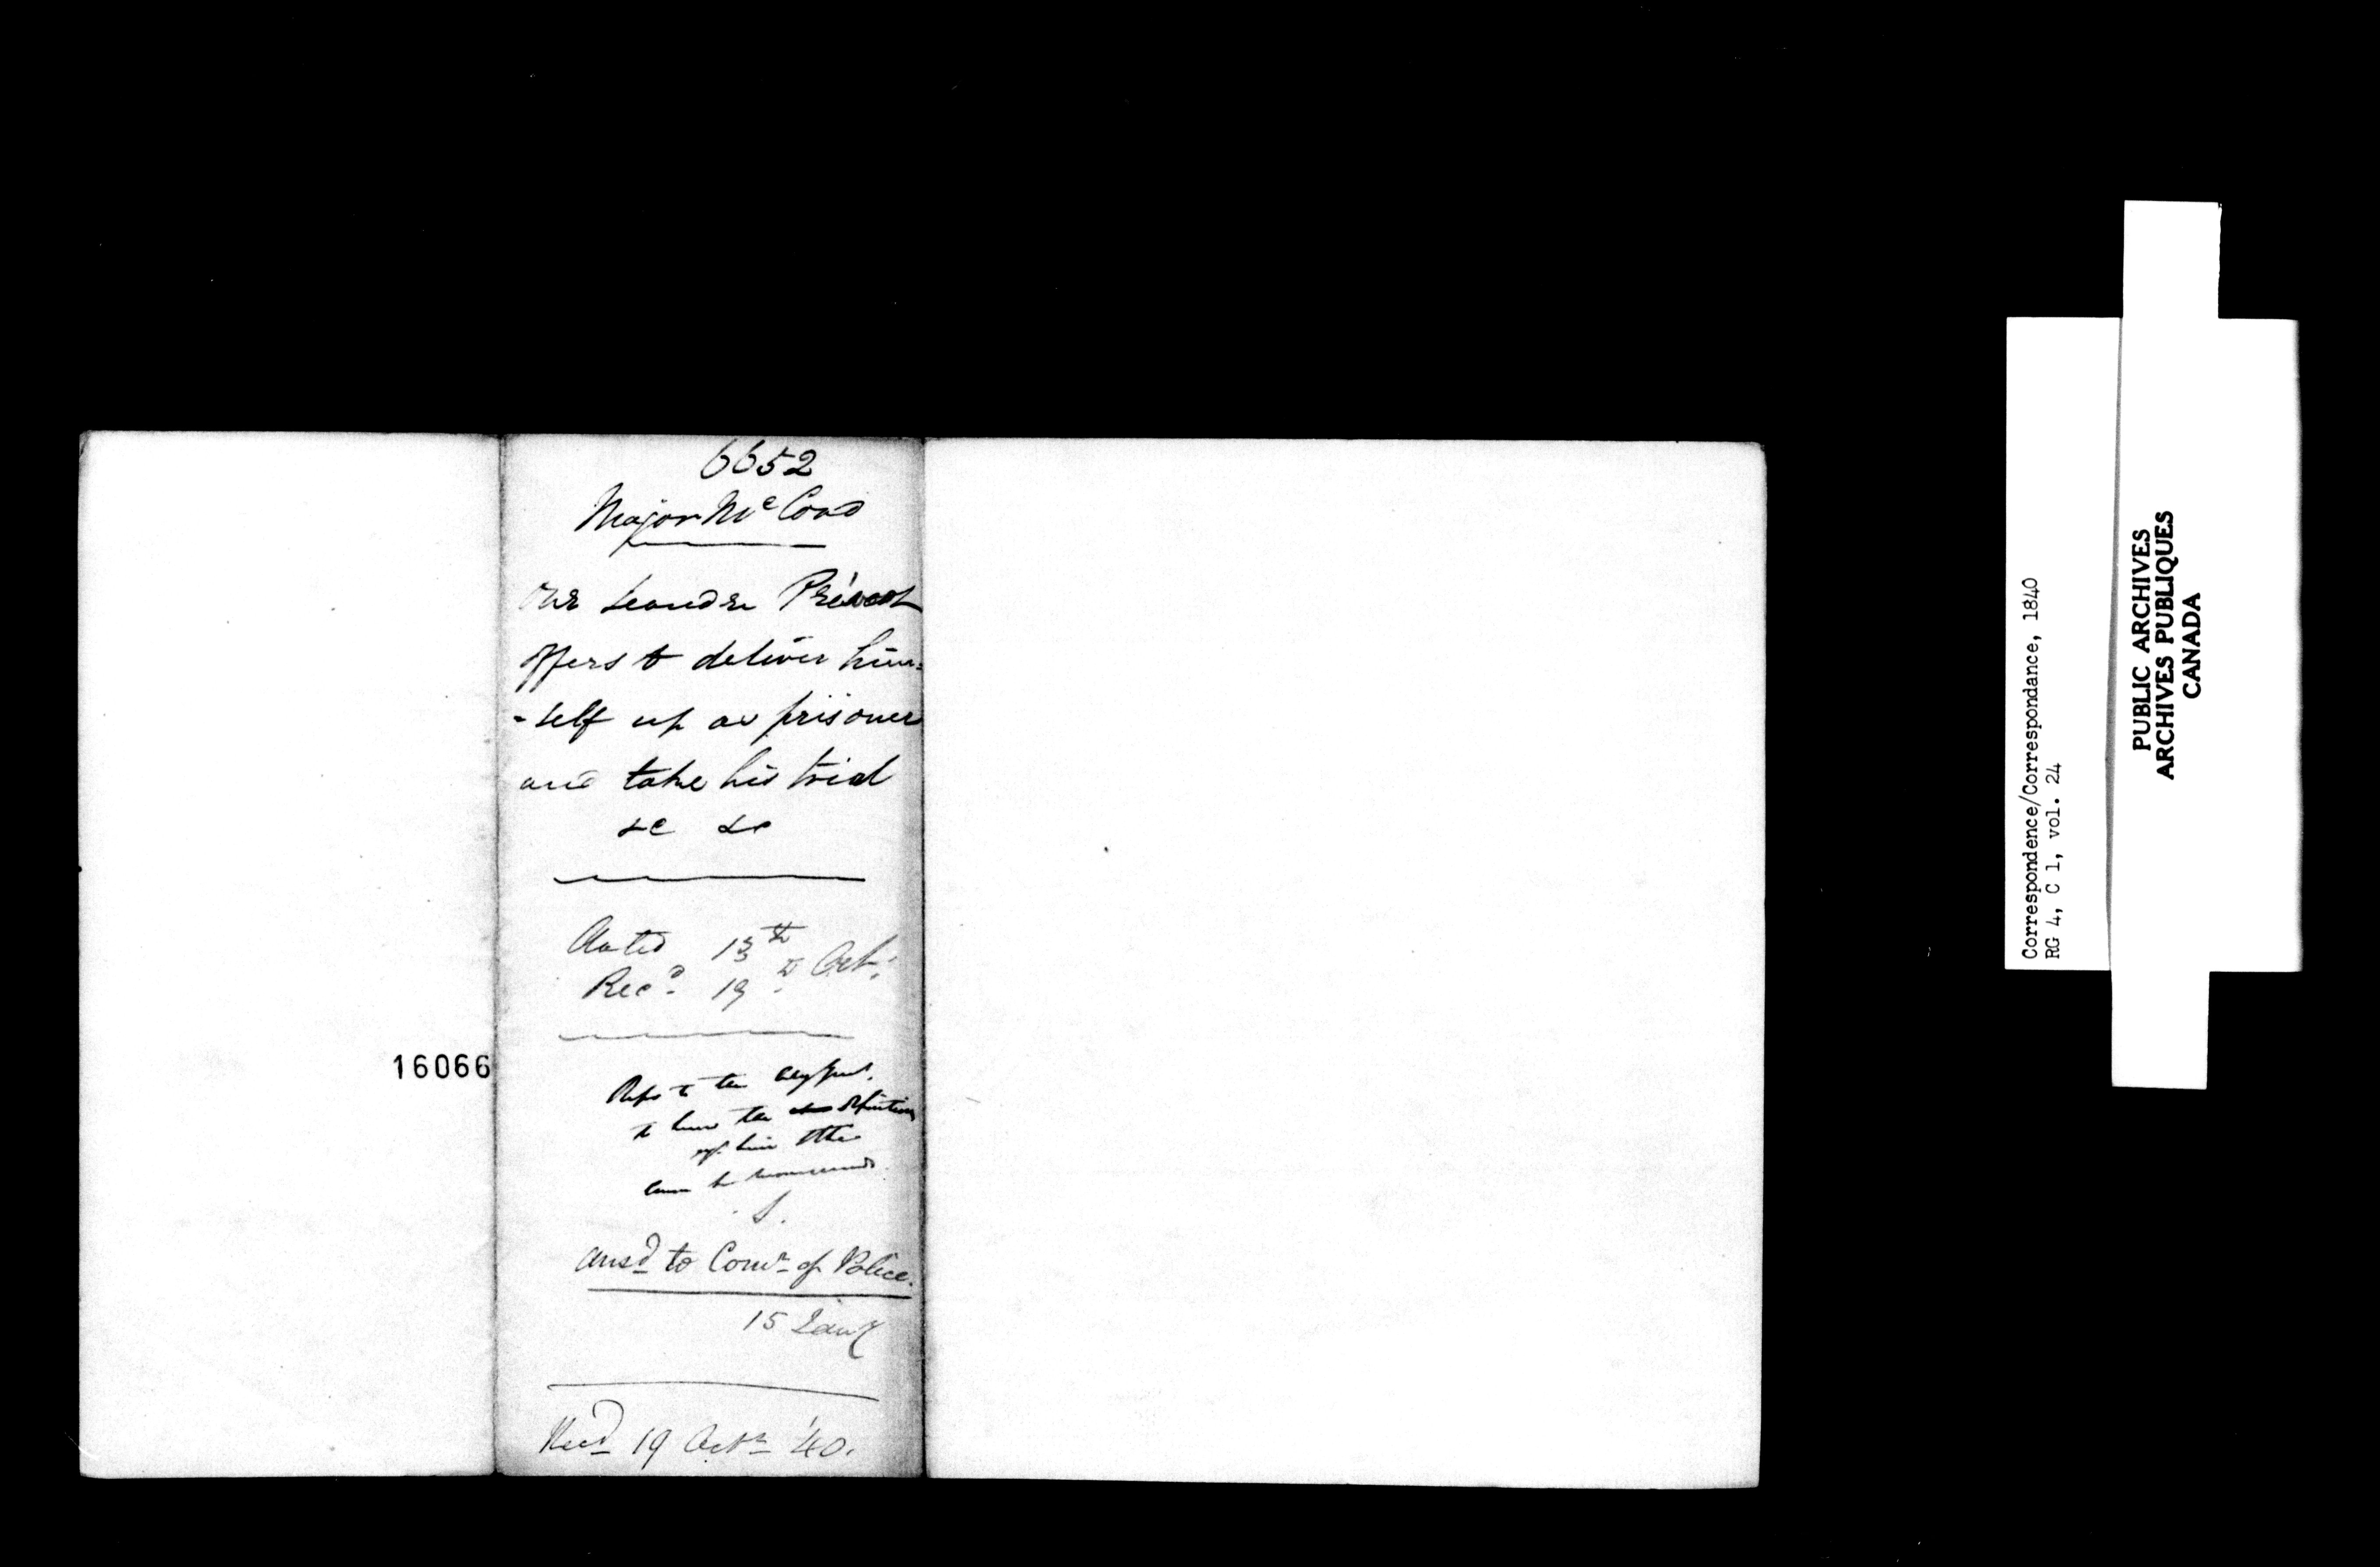 6652
Major McCord
One Leandre Prévost
offers to deliver him=
-self up as prisoner
and take his trial
&c &c
Dated 13th
Recd. 19th Octr.
16066
Refer to the
to have the
him
.S.
ansd to Comr of Police.
15 Jany
Recd 19 Octr '40.
Correspondence/Correspondance, 1840
RG 4, C 1, vol. 24
PUBLIC ARCHIVES
ARCHIVES PUBLIQUES
CANADA